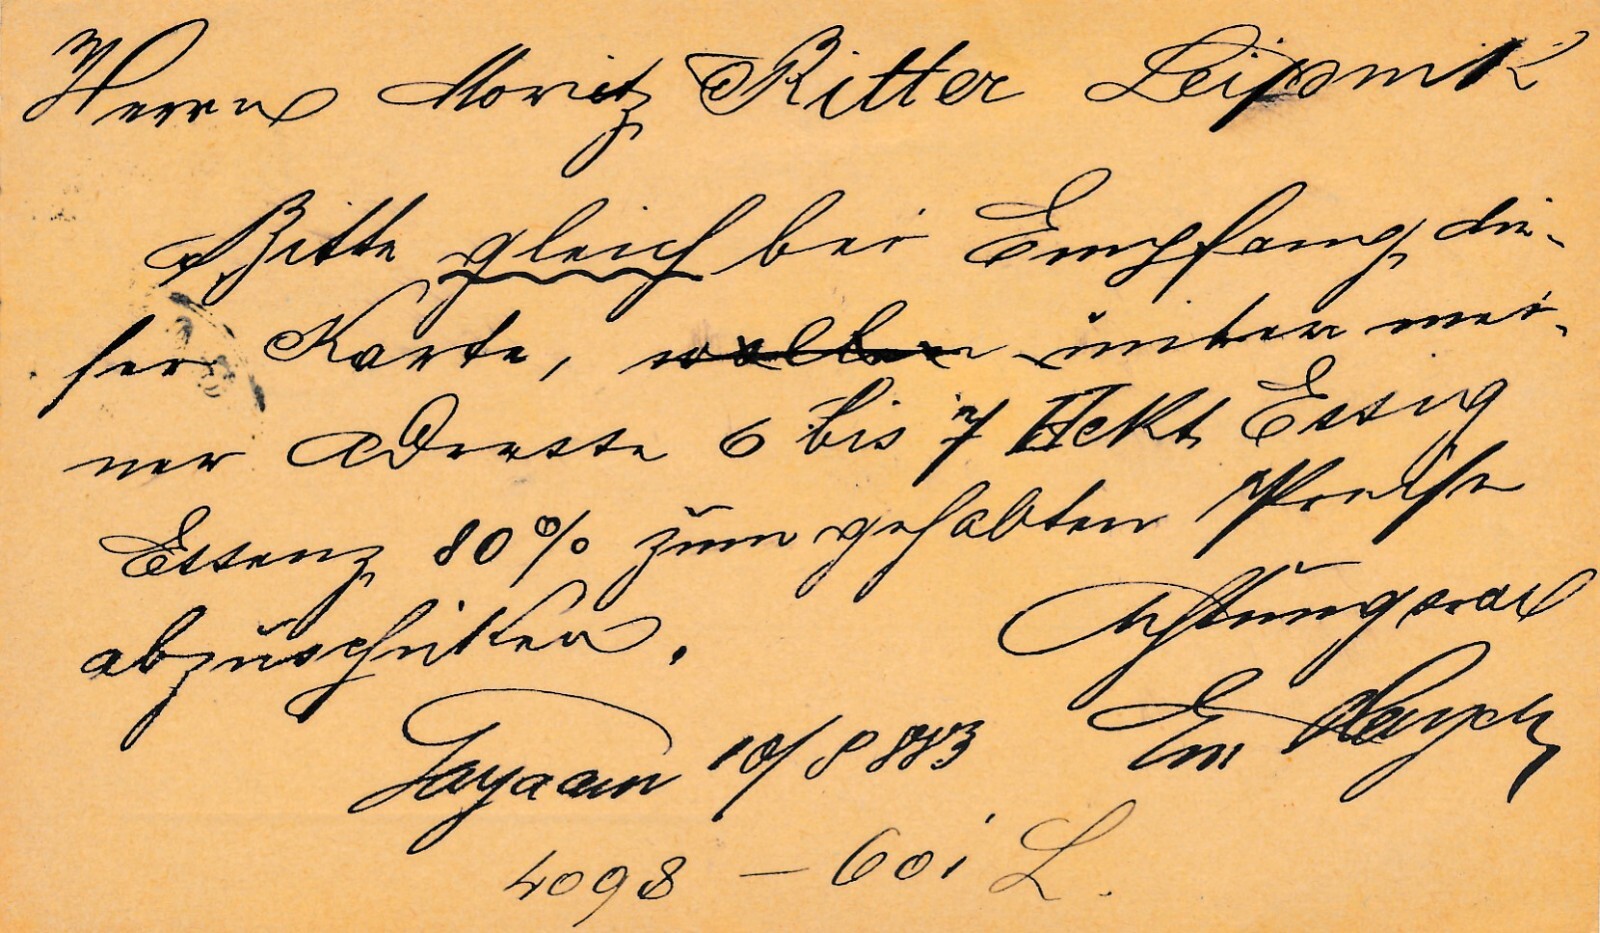 Herrn Moritz Ritter Leipnik
Bitte gleich bei Empfang die-
ser Karte, wollen unter mei-
ner Adresse 6 bis 7 Hekt Essig
Essenz 80% zum gehabten Preise
abzuschiken.
Achtungsvoll
10/8 883 Em
4098 — 601 L.